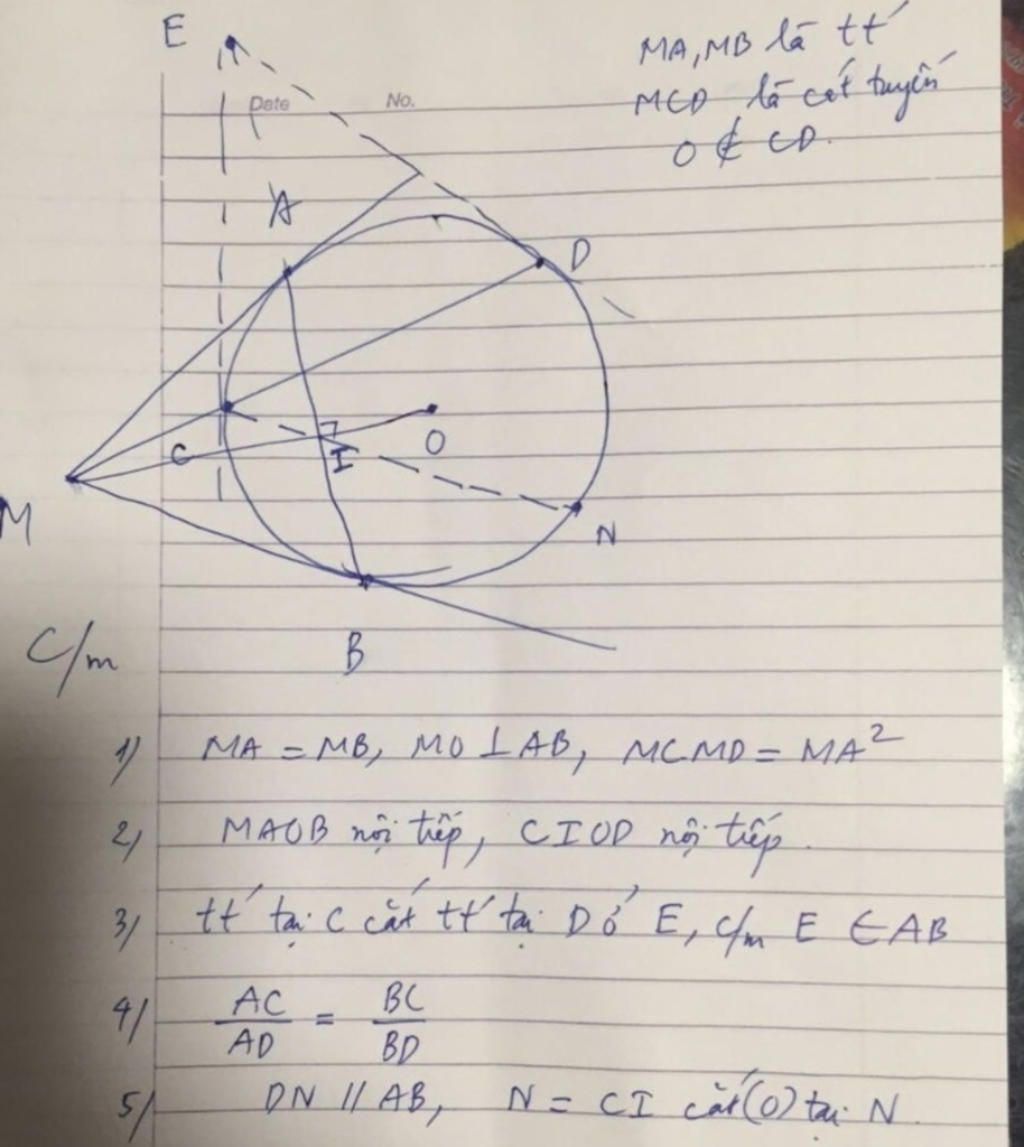 E
MA, MB là tt'
MCD là cát tuyến
O ∉ CD.
Date No.
A
D
C
I
O
M
N
B
C/m
1) MA = MB, MO ⊥ AB, MC.MD = MA²
2) MAOB nội tiếp, CIOD nội tiếp.
3) tt' tại C cắt tt' tại D ở E, c/m E ∈ AB
4) AC/AD = BC/BD
5) DN // AB, N = CI cắt (O) tại N.